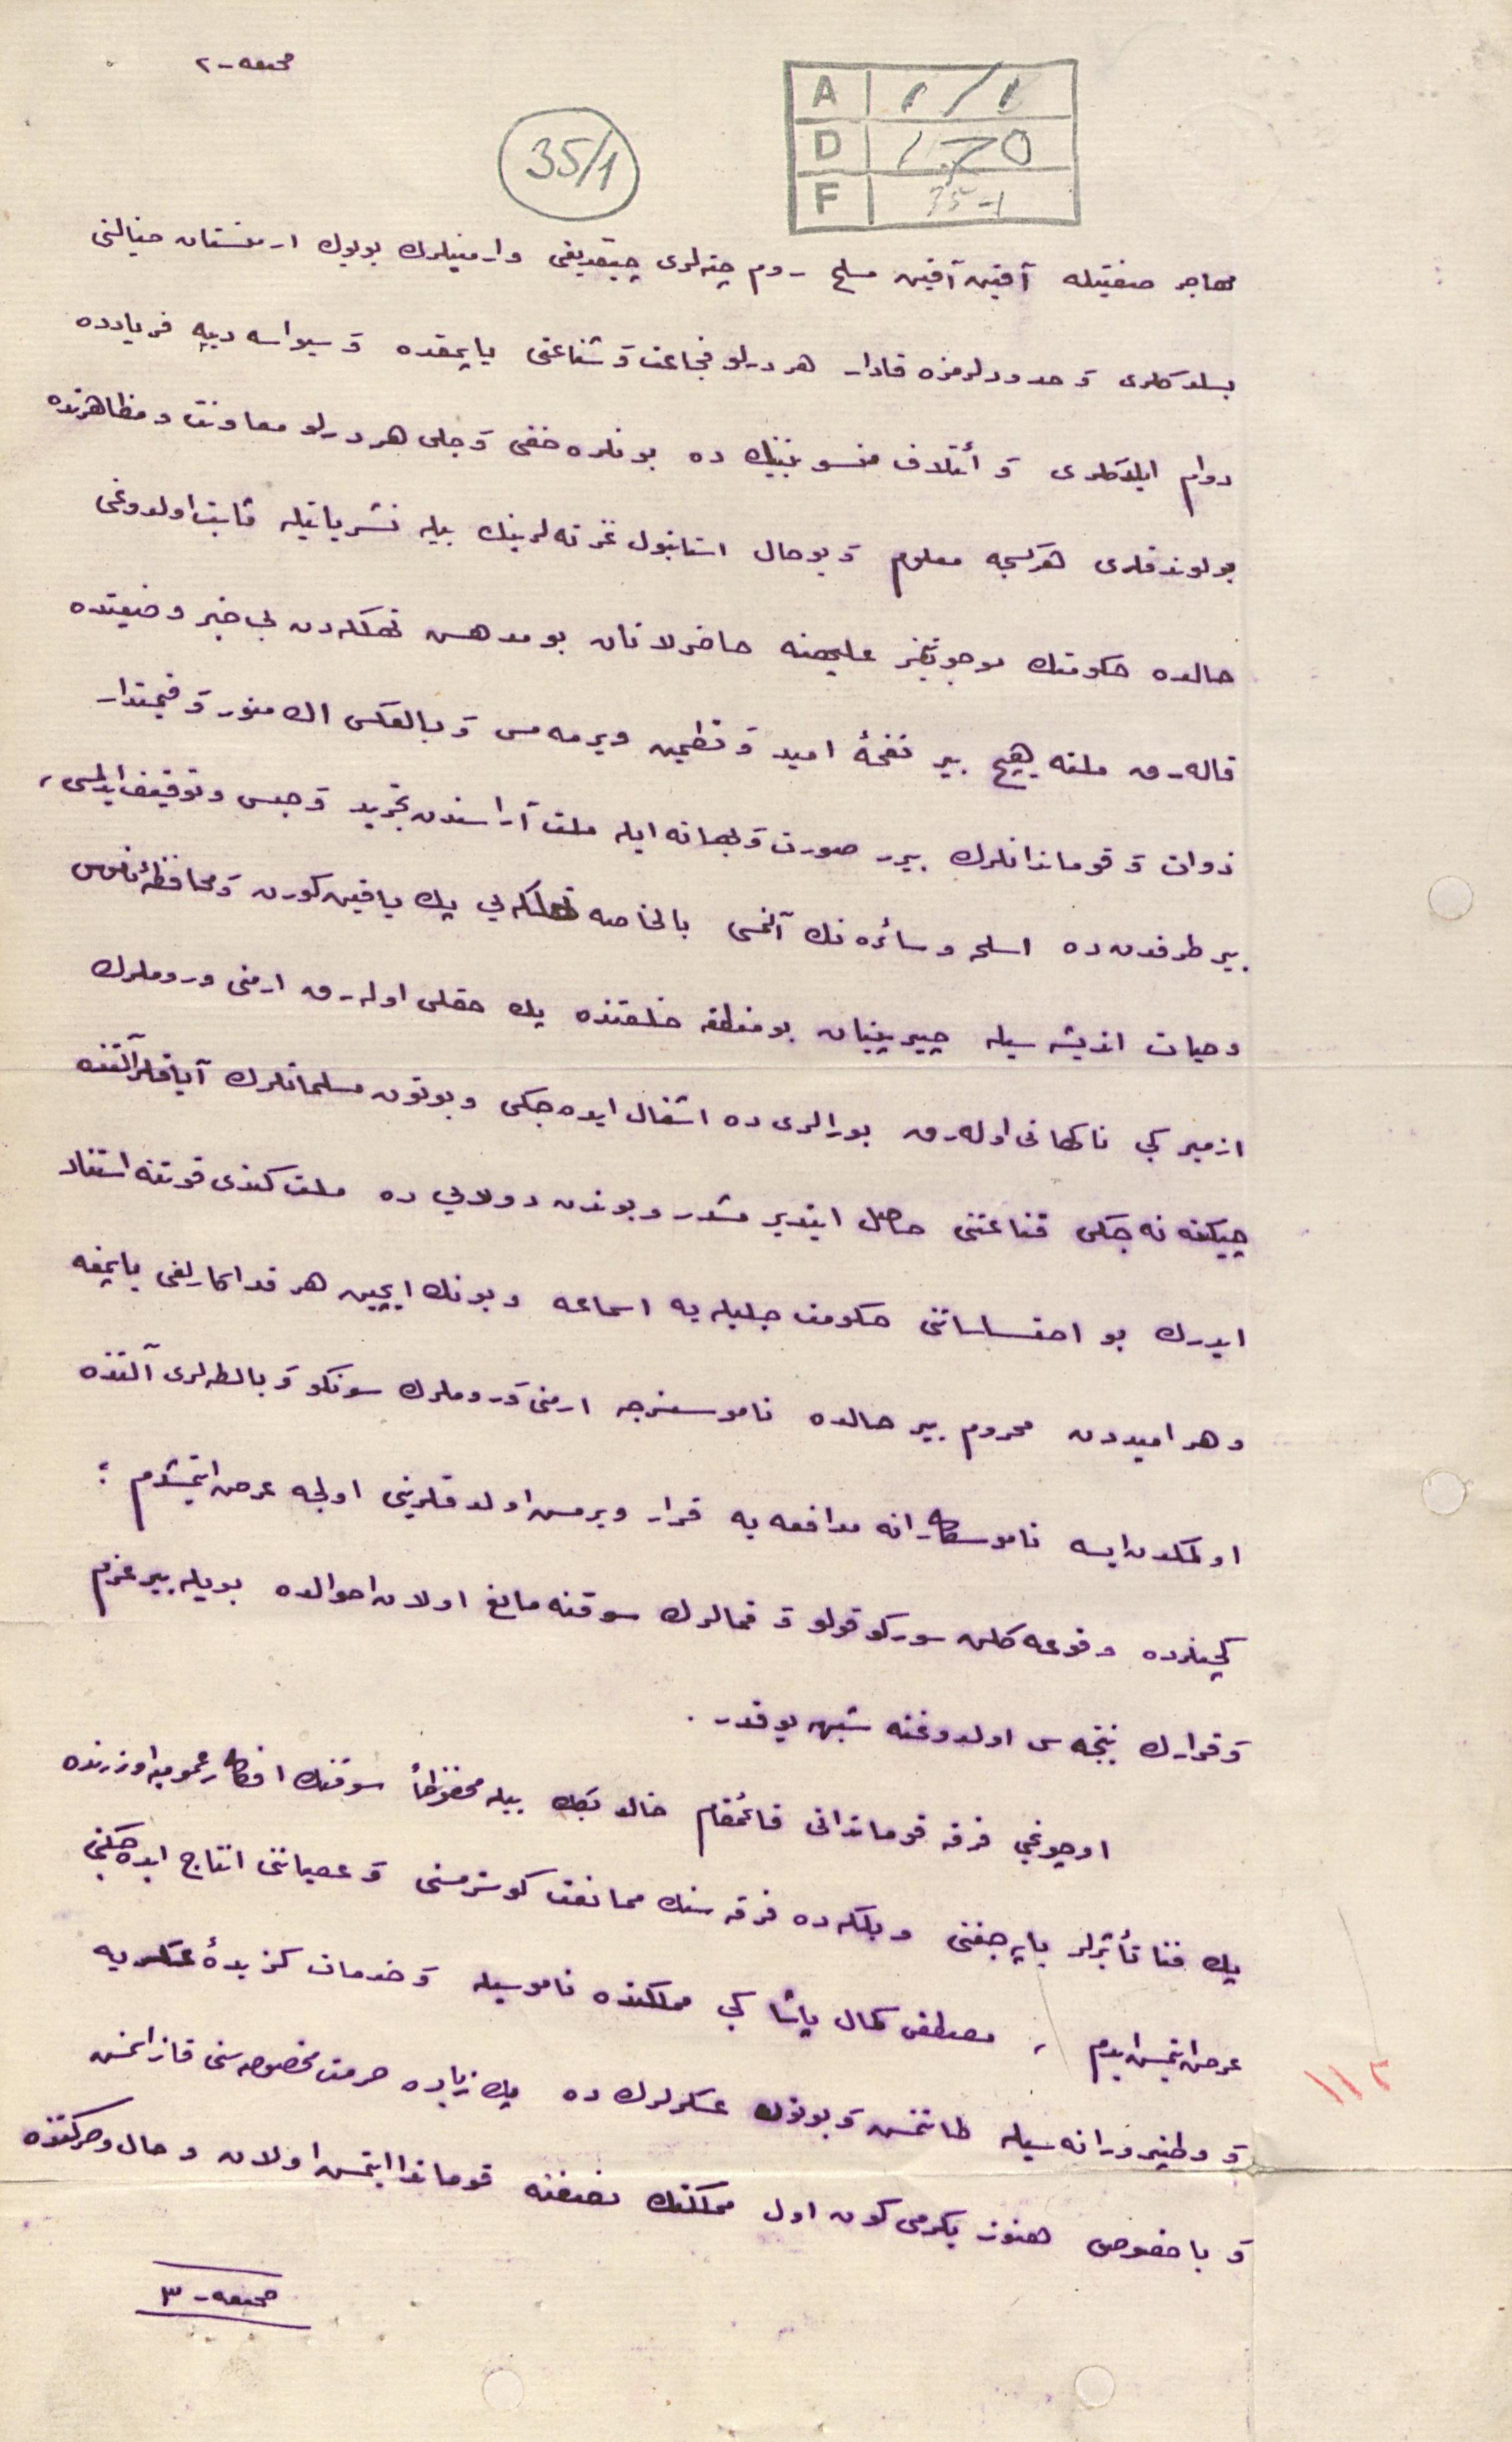 صحیفه - ٢
A 1/1
D 1.70
F 35-1
35/1
مهاجر صفتیله آقین آقین مسلح روم چته لری چیقدیغی وارمنیلرك بویوك ارمنستان خیالنی
بسله دكلری و حدودلرمزه قادار هر درلو فجاعت و شناعتی یاپمقده و سیواسه دییه فریادده
دوام ایلدكلری و أئتلاف منسوبیننك ده بونلره خفی و جلی هر درلو معاونت و مظاهرتده
بولوندقلری هركسجه معلوم و بو حال استانبول غزته لرینك بیله نشریاتیله ثابت اولدوغی
حالده حكومتك موجودیتمز علیهنه حاضرلانان بو مدهش تهلكه دن بی خبر وضعیتده
قاله رق ملته هیچ بیر نفخهٔ امید و تطمین ویرمه مسی و بالعكس اك منور و قیمتدار
ذوات و قوماندانلرك بیرر صورت و بهانه ایله ملت آراسندن تجرید و حبس و توقیف ایدلمسی،
بیر طرفدن ده اسلحه وسائره نك آلنمسی بالخاصه تهلكه یی پك یاقین كورن و محافظهٔ ناموس
و حیات اندیشه سیله چیرپینان بو منطقه خلقنده پك حقلی اوله رق ارمنی و روملرك
ازمیر كبی ناكهانی اوله رق بورالری ده اشغال ایده جكی و بوتون مسلمانلرك آیاقلر آلتنده
چیكنه نه جكی قناعتنی حاصل ایتدیرمشدر و بوندن دولایی ده ملت كندی قوتنه استناد
ایدرك بو احتساساتنی حكومت جلیله یه اسماعه و بونك ایچین هر فداكارلغی یاپمغه
و هر امیددن محروم بیر حالده ناموسسزجه ارمنی و روملرك سونكو و بالطه لری آلتنده
اولمكدن ایسه ناموسكارانه مدافعه یه قرار ویرمش اولدقلرینی اولجه عرض ایتمشدم ؛
كچنلرده وقوعه كلن سورگو قولو و قمالرك سوقنه مانع اولان احوالده بویله بیر عزم
و قرارك نتیجه سی اولدوغنه شبهه یوقدر .
اوچونجی فرقه قوماندانی قائمقام خالد بك بیله محفوظاً سوقنك افكار عمومیه اوزرنده
پك فنا تأثیرلر یاپه جغنی و بلكه ده فرقه سنك ممانعت كوسترمسنی و عصیاننی انتاج ایده جكنی
عرض ایتمش ایدم ، مصطفی كمال پاشا كبی مملكتده ناموسیله و خدمات كزیدهٔ عسكریه
و وطنپرورانه سیله طانینمش و بوتون عسكرلرك ده پك زیاده حرمت مخصوصه سنی قازانمش
و باخصوص هنوز یكرمی كون اول مملكتك نصفنه قوماندا ایتمش اولان و حال و حركتنده
١١٢
صحیفه - ٣